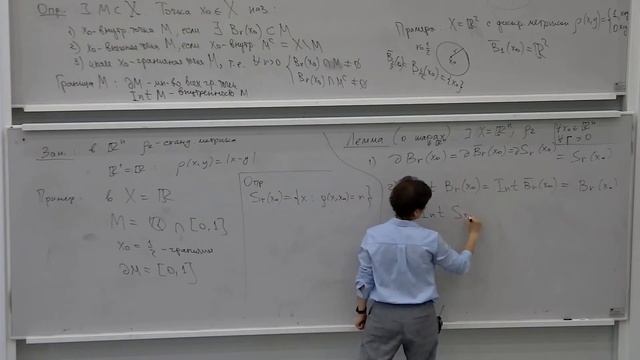 Опр. ∃ M ⊂ X Точка x₀ ∈ X наз.
1) x₀ - внутр. точка M, если ∃ Bᵣ(x₀) ⊂ M
2) x₀ - внешняя точка M, если x₀ - внутр Mᶜ = X\M
3) иначе x₀ - граничная точка M, т.е. ∀ r>0 { Bᵣ(x₀) ∩ M ≠ ∅
Bᵣ(x₀) ∩ Mᶜ ≠ ∅
Граница M: ∂M - мн-во всех гр. точек
Int M - внутренность M
Пример X = ℝ² с дискр. метрикой ρ(x,y) = {
x₀
B₁(x₀) = ℝ²
Зам. в ℝⁿ ρ₂ - станд. метрика
ℝ¹ = ℝ: ρ(x,y) = |x-y|
Пример: в X = ℝ
M = ℚ ∩ [0,1]
x₀ = ½ - граничная
∂M = [0,1]
Опр
Sᵣ(x₀) = {x : ρ(x,x₀) = r}
Лемма (о шарах) ∃ X = ℝⁿ, ρ₂ { x₀ ∈ ℝⁿ
r > 0
1) ∂Bᵣ(x₀) = ∂B̄ᵣ(x₀) = ∂Sᵣ(x₀) = Sᵣ(x₀)
Bᵣ(x₀) = Int B̄ᵣ(x₀) = Bᵣ(x₀)
Int S